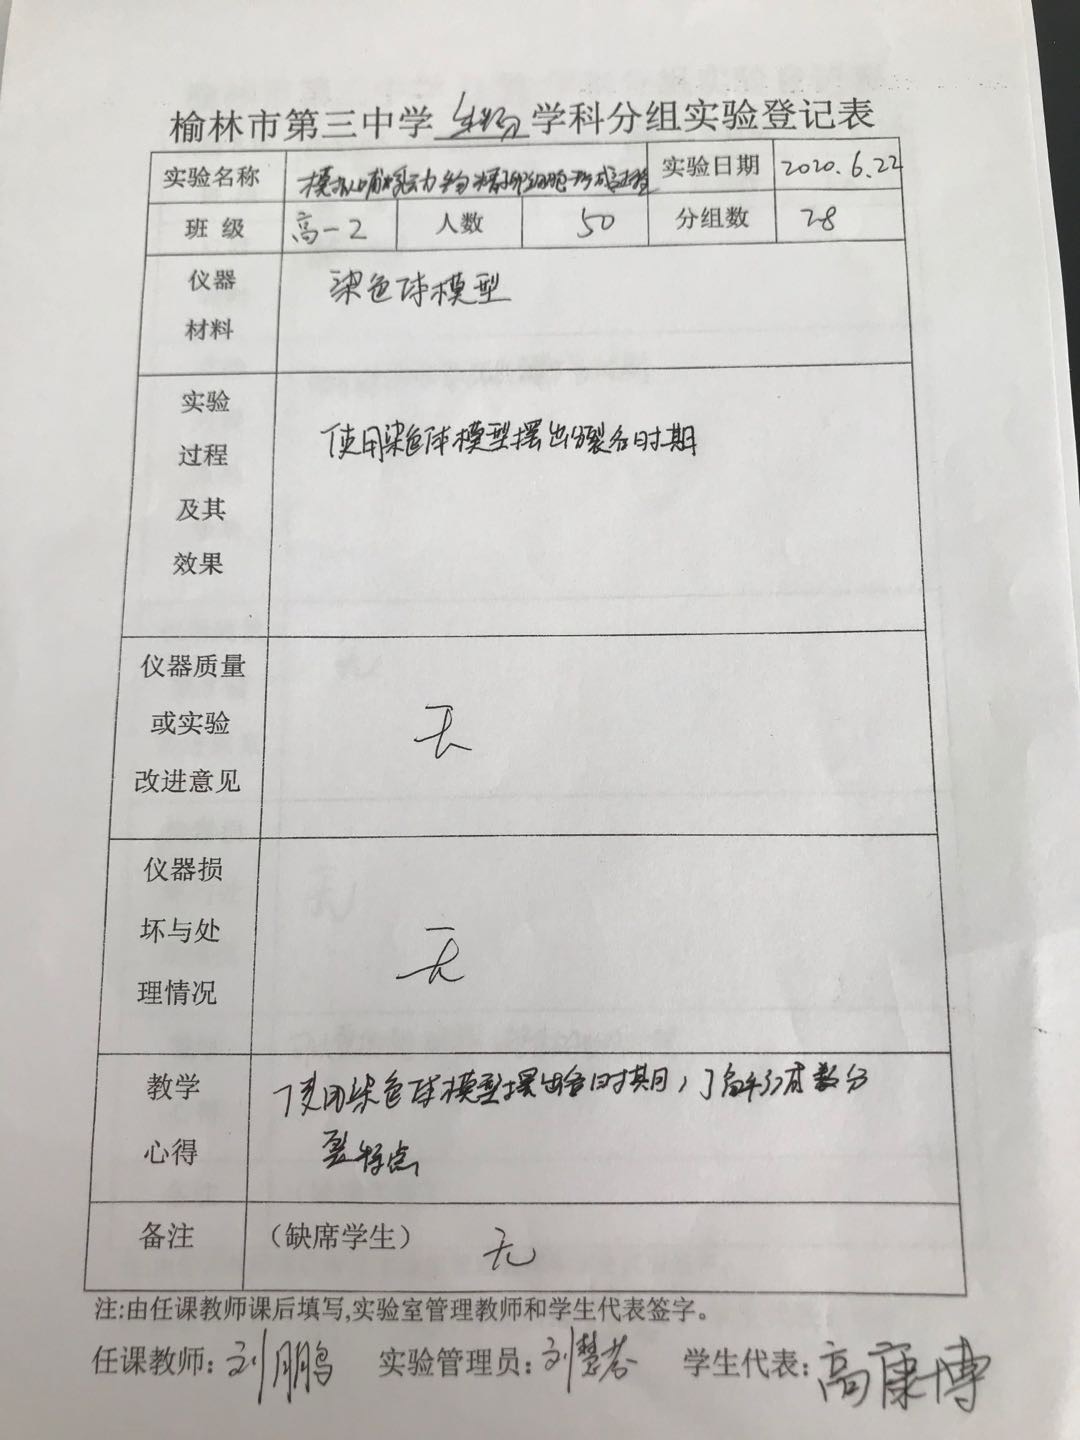 榆林市第三中学生物学科分组实验登记表
实验名称 模拟哺乳动物精卵细胞形成过程 实验日期 2020.6.22
班级 高一2 人数 50 分组数 28
仪器
材料
染色体模型
实验
过程
及其
效果
使用染色体模型摆出分裂各时期
仪器质量
或实验
改进意见
无
仪器损
坏与处
理情况
无
教学
心得
使用染色体模型摆出各时期,了解减数分
裂特点
备注 (缺席学生) 无
注:由任课教师课后填写,实验室管理教师和学生代表签字。
任课教师:刘鹏 实验管理员:刘慧 学生代表:高康博